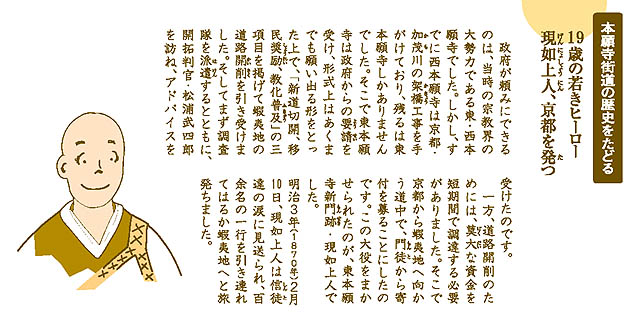 本願寺街道の歴史をたどる
19歳の若きヒーロー
現如上人、京都を発つ
政府が頼みにできる
のは、当時の宗教界の
大勢力である東・西本
願寺でした。しかし、す
でに西本願寺は京都・
加茂川の架橋工事を手
がけており、残るは東
本願寺しかありません
でした。そこで東本願
寺は政府からの要請を
受け、形式上はあくま
でも願い出る形をとっ
た上で、「新道切開、移
民奨励、教化普及」の三
項目を掲げて蝦夷地の
道路開削を引き受けま
した。そしてまず調査
隊を派遣するとともに、
開拓判官・松浦武四郎
を訪ね、アドバイスを
受けたのです。
一方、道路開削のた
めには、莫大な資金を
短期間で調達する必要
がありました。そこで
京都から蝦夷地へ向か
う道中で、門徒から寄
付を募ることにしたの
です。この大役をまか
せられたのが、東本願
寺新門跡・現如上人で
した。
明治3年(1870年)2月
10日、現如上人は信徒
達の涙に見送られ、百
余名の一行を引き連れ
てはるか蝦夷地へと旅
発ちました。